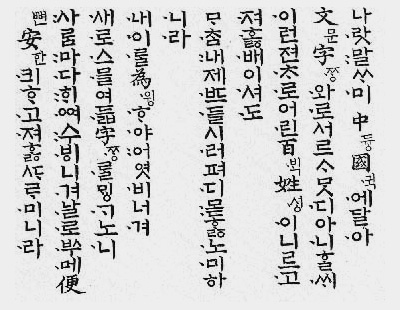 나·랏:말ᄊᆞ·미 中듕國·귁·에달·아
文문字·ᄍᆞᆼ·와·로서르ᄉᆞᄆᆞᆺ·디아·니ᄒᆞᆯ·ᄊᆡ
·이런젼·ᄎᆞ·로어·린百·ᄇᆡᆨ姓·셩·이니르·고
·져·호ᇙ·배이·셔·도
ᄆᆞ·ᄎᆞᆷ:내제·ᄠᅳ·들시·러펴·디:몯ᄒᆞᇙ·노·미하
·니·라
·내·이·ᄅᆞᆯ爲·윙·ᄒᆞ·야:어엿·비너·겨
·새·로·스·믈여·듧字·ᄍᆞᆼ·ᄅᆞᆯᄆᆡᇰ·ᄀᆞ·노·니
:사ᄅᆞᆷ:마·다:ᄒᆡ·ᅇᅧ:수·ᄫᅵ니·겨·날·로·ᄡᅮ·메便
뼌安한·킈ᄒᆞ·고·져ᄒᆞᇙᄯᆞᄅᆞ·미니·라